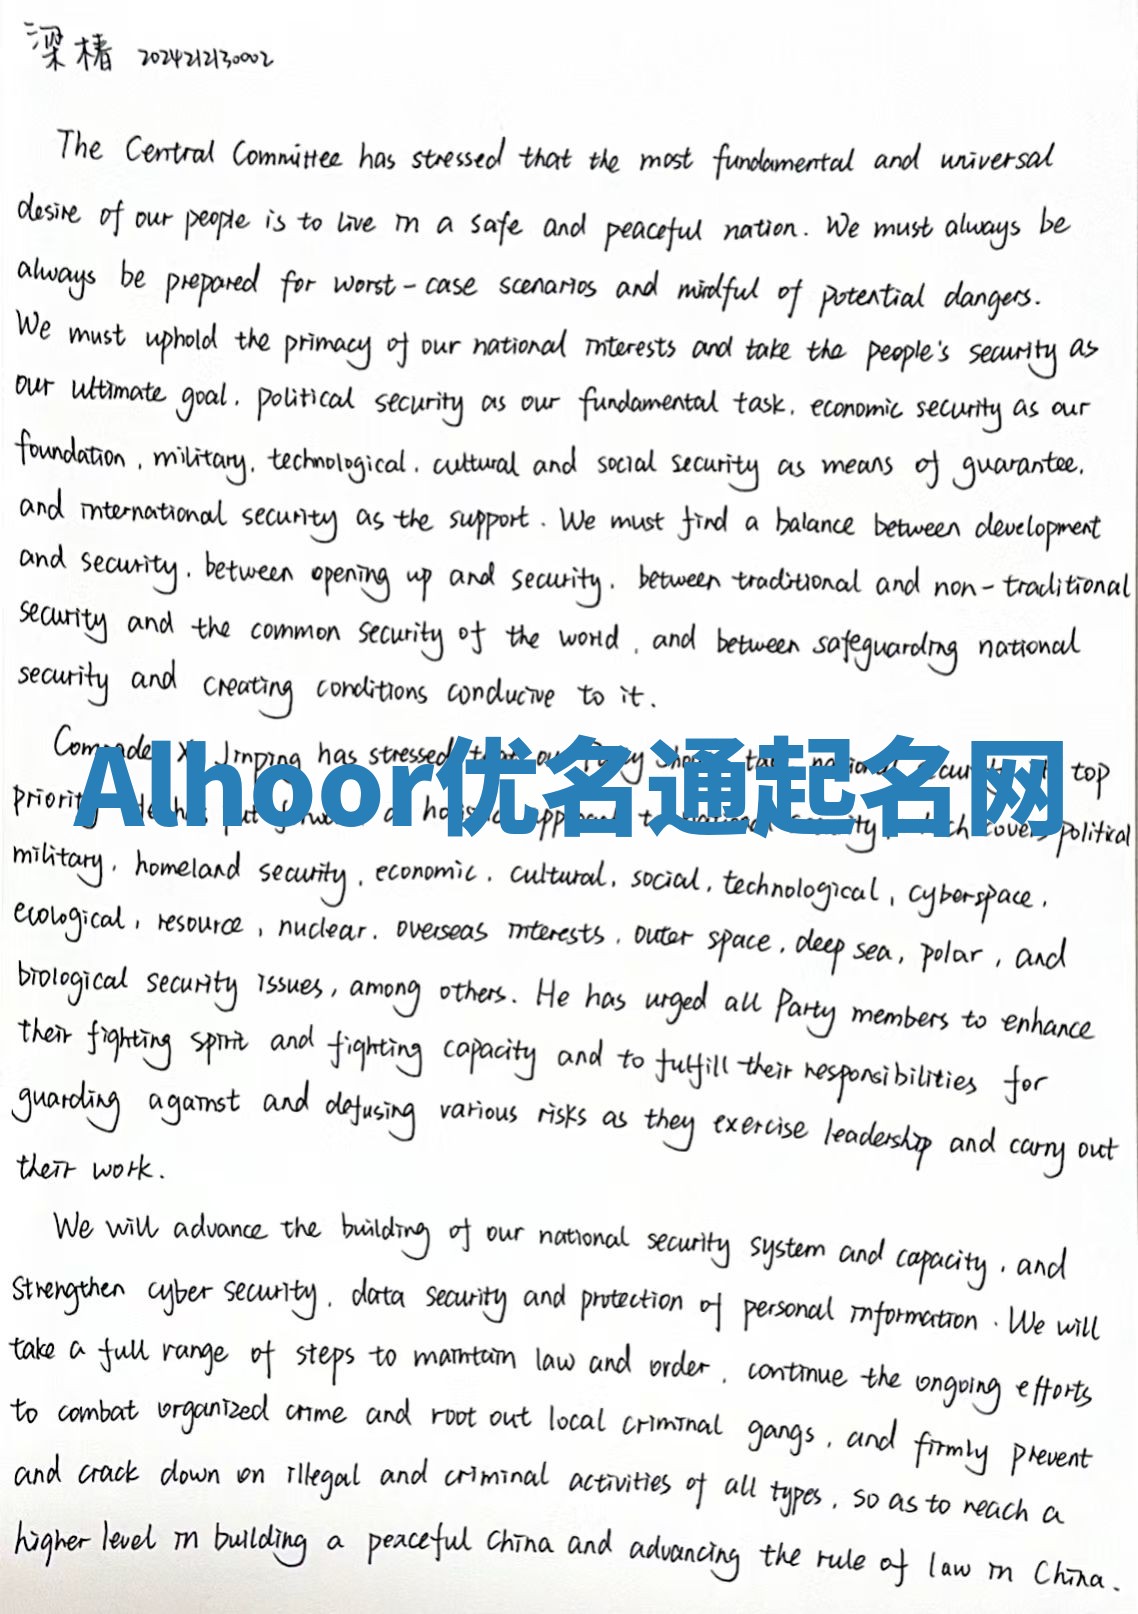 梁椿 2024212130002
The Central Committee has stressed that the most fundamental and universal
desire of our people is to live in a safe and peaceful nation. We must always be
always be prepared for worst-case scenarios and mindful of potential dangers.
We must uphold the primacy of our national interests and take the people's security as
our ultimate goal, political security as our fundamental task, economic security as our
foundation, military, technological, cultural and social security as means of guarantee,
and international security as the support. We must find a balance between development
and security, between opening up and security, between traditional and non-traditional
security and the common security of the world, and between safeguarding national
security and creating conditions conducive to it.
Jinping has stressed top
Alhoor优名通起名网
political
military, homeland security, economic, cultural, social, technological, cyberspace,
ecological, resource, nuclear, overseas interests, outer space, deep sea, polar, and
biological security issues, among others. He has urged all Party members to enhance
their fighting spirit and fighting capacity and to fulfill their responsibilities for
guarding against and defusing various risks as they exercise leadership and carry out
their work.
We will advance the building of our national security system and capacity, and
strengthen cyber security, data security and protection of personal information. We will
take a full range of steps to maintain law and order, continue the ongoing efforts
to combat organized crime and root out local criminal gangs, and firmly prevent
and crack down on illegal and criminal activities of all types, so as to reach a
higher level in building a peaceful China and advancing the rule of law in China.